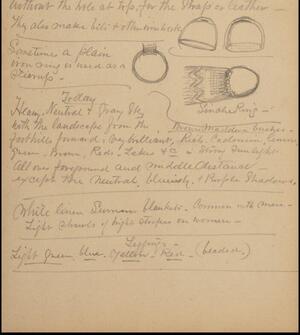 without the hole at top, for the straps or leather -
They also make bits & other ironwork
Sometime a plain
iron ring is used as a
Stirrup -
Single Ring -
Today
Neutral & Gray Sky
with the landscape from the
foothills forward, very brilliant, Reds. Cadmium,
Green - Brown, Reds. Lakes & - Strong Sunlight.
All on foreground and middle distance
except the Neutral, blueish, & Purple Shadows.
White linen German blankets. Common with men -
Light shawls of bright stripes on women -
Leggings -
Light Green, blue. Yellow - Red - (beaded.)